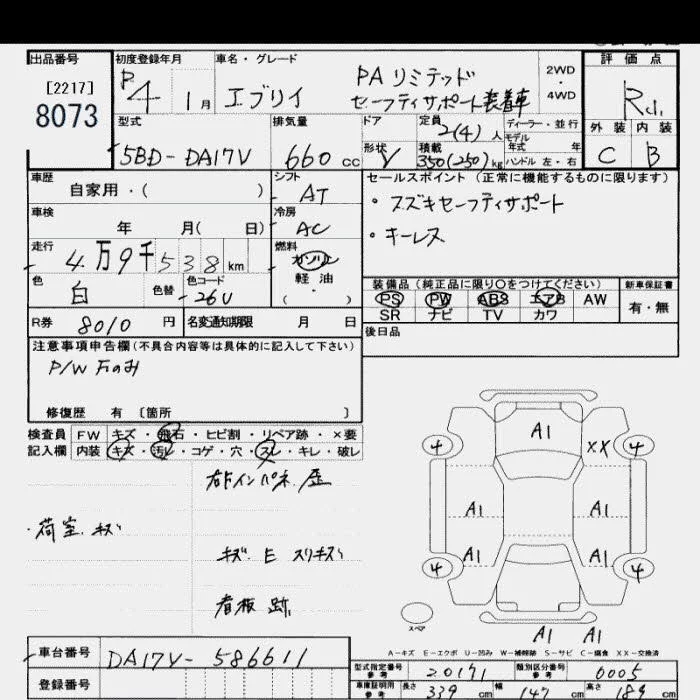 出品番号
[2217]
8073
初度登録年月
R4 1月
車名・グレード
エブリイ
PA リミテッド
セーフティサポート装着車
2WD
4WD
評価点
R
外装 内装
C B
型式
5BD-DA17V
排気量
660 cc
ドア
形状 V
定員
2(4)人
積載
350(250)kg
ディーラー・並行
モデル
年式 年
ハンドル 左・右
車歴
自家用・( )
シフト
AT
車検
年 月( 日)
冷房
AC
走行
4万9千538km
燃料
ガソリン
軽油
・( )
色
白
色替
色コード
26U
R券 8010 円
名変通知期限 月 日
セールスポイント(正常に機能するものに限ります)
・スズキセーフティサポート
・キーレス
装備品(純正品に限り〇をつけてください)
PS PW ABS エアB AW
SR ナビ TV カワ
新車保証書
有・無
後日品
注意事項申告欄(不具合内容等は具体的に記入して下さい)
P/W Fのみ
修復歴 有 〔箇所 〕
検査員
記入欄
FW キズ・飛石・ヒビ割・リペア跡・×要
内装 キズ・汚レ・コゲ・穴・スレ・キレ・破レ
右ドインパネ 歪
・荷室 キズ
キズ E スリキズ
看板 跡
A1
4 XX 4
A1 A1
A1 A1
4 4
スペア
A1 A1
A-キズ E-エクボ U-凹み W-補修跡 S-サビ C-腐食 XX-交換済
車台番号 DA17V-586611
登録番号
型式指定番号
参考
20171
類別区分番号
参考
0005
車庫証明用
参考
長さ 339 cm 幅 147 cm 高さ 189 cm